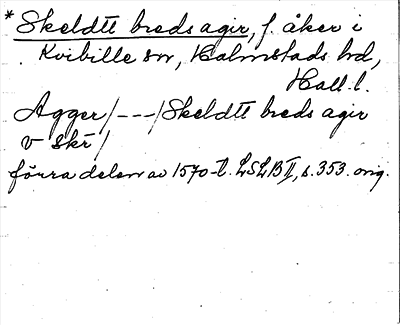 * Skeldtt breds agir, f. åker i
Kvibille sn, Halmstads hd,
Hall. l.
Agger /---/ Skeldtt breds agir
v skr /
förra delen av 1570-t. LSLB II, s. 353. orig.